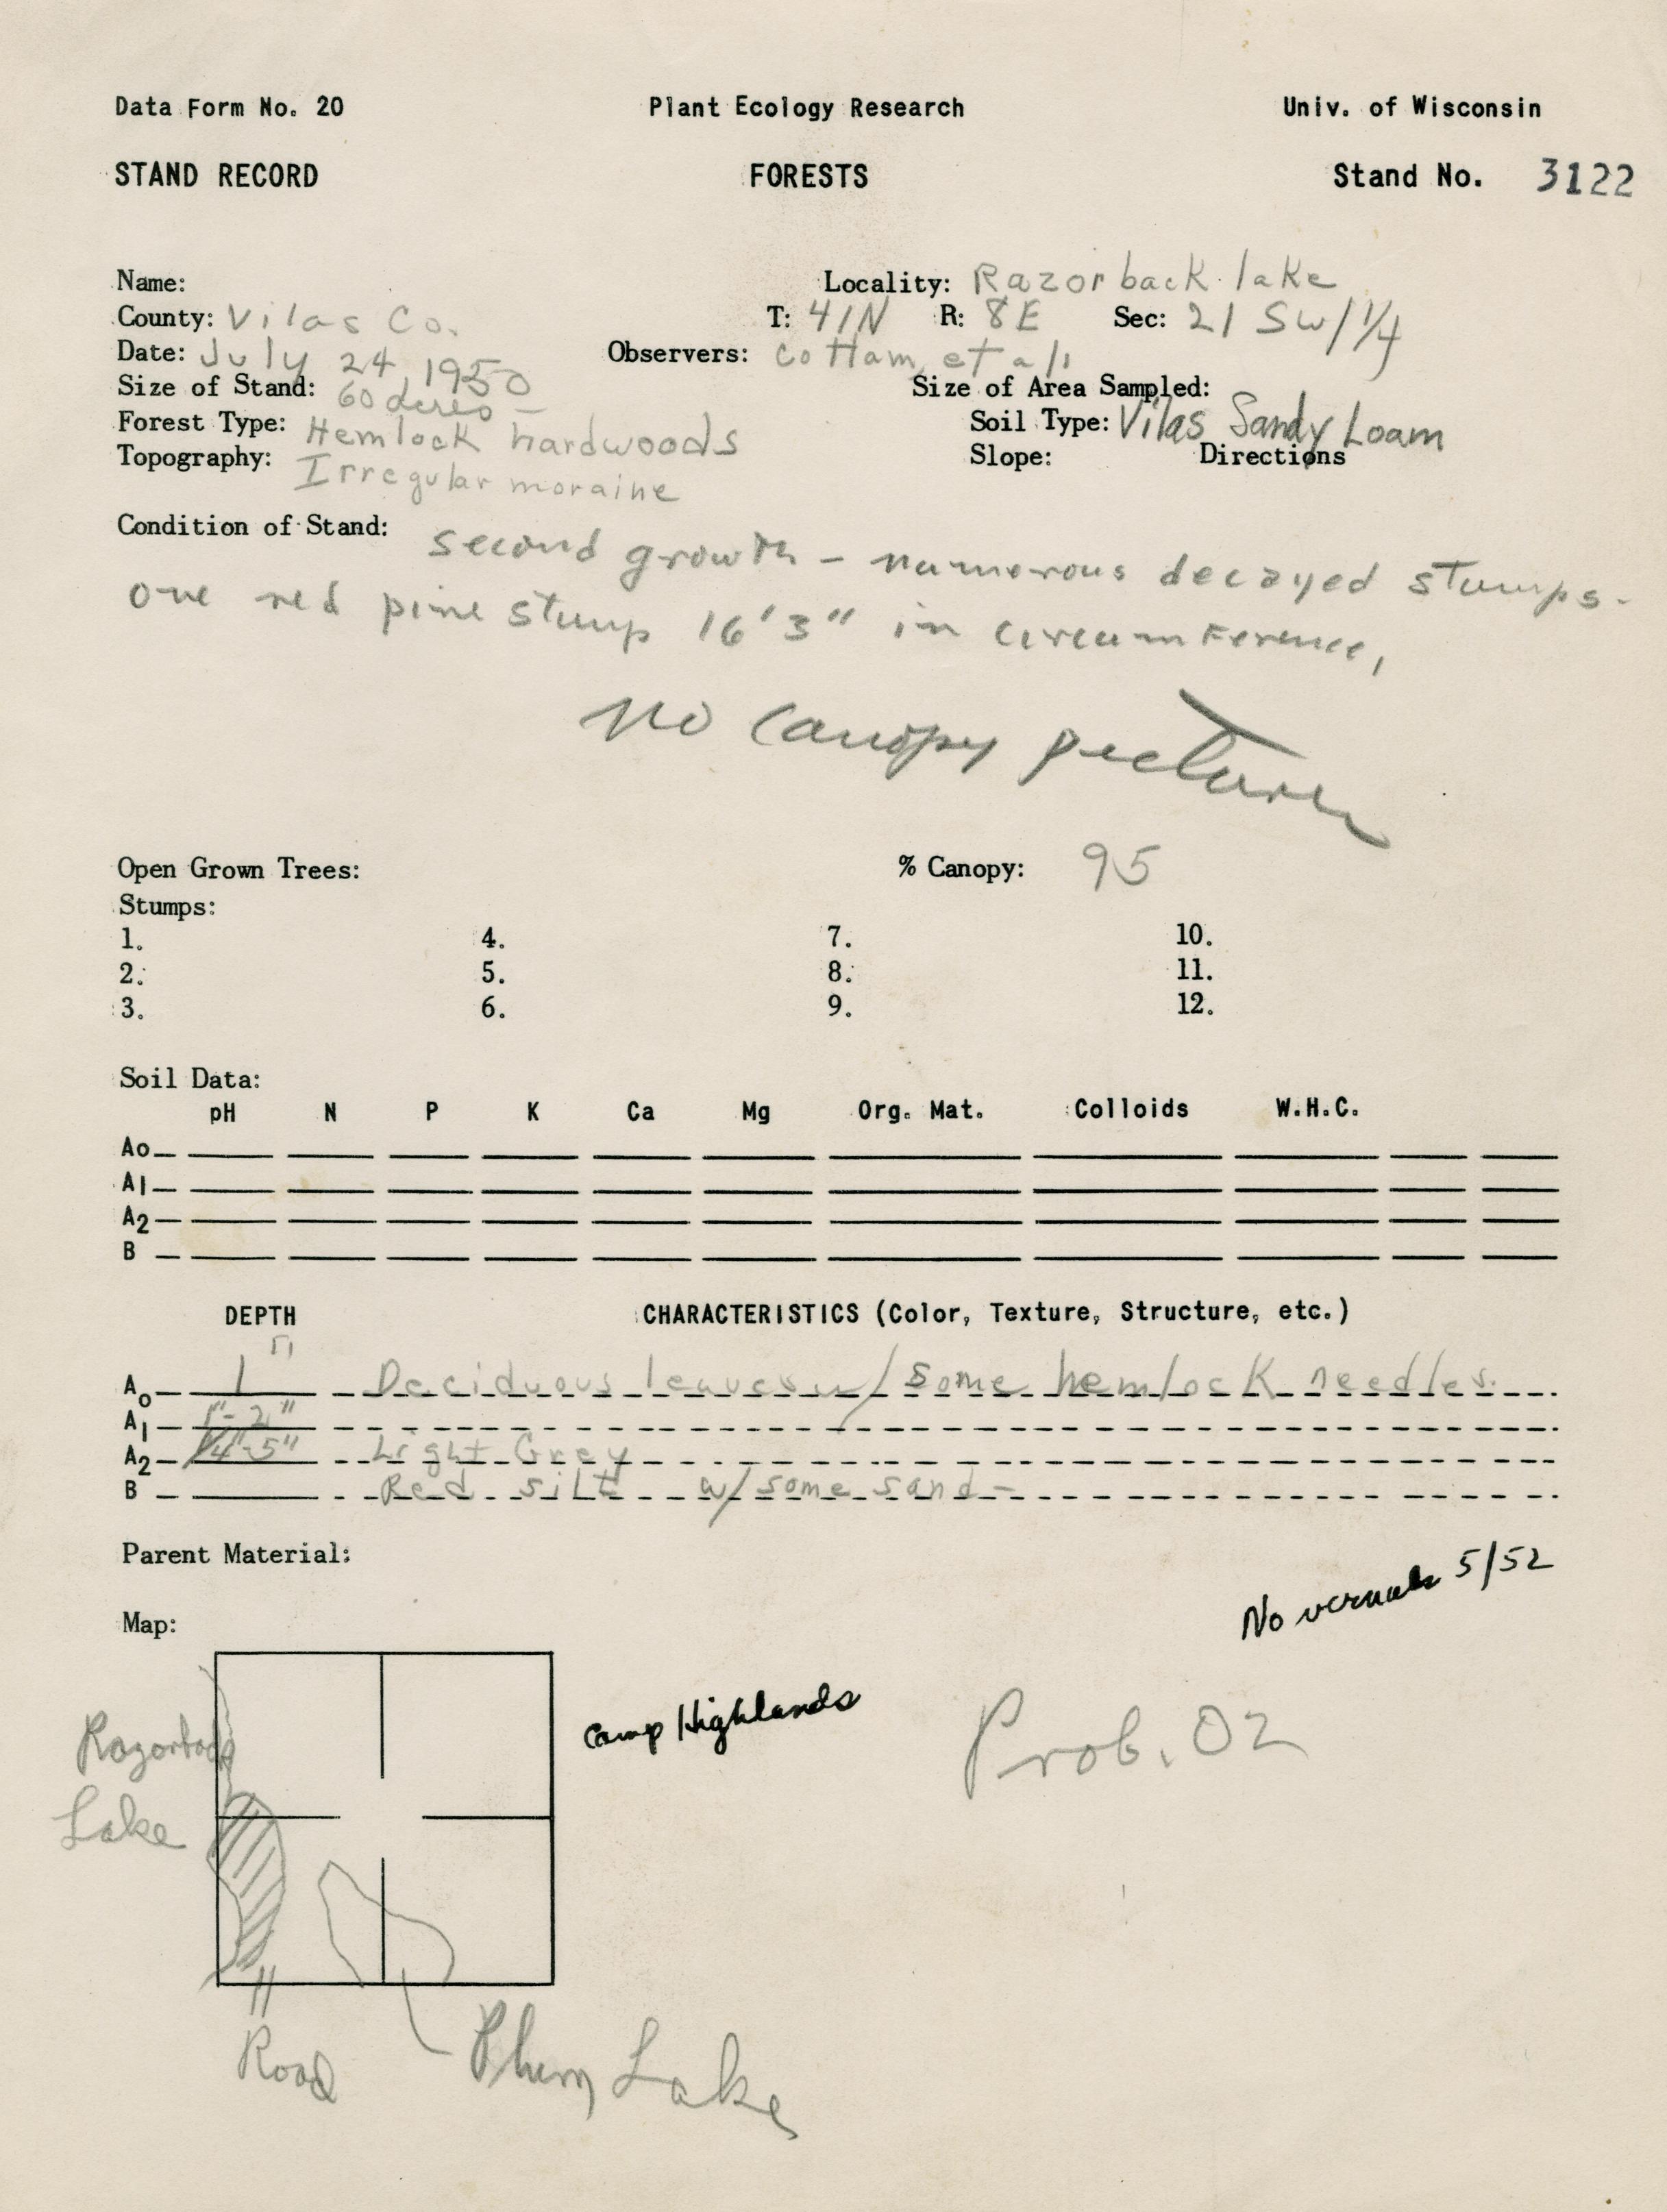 Data Form No. 20 Plant Ecology Research Univ. of Wisconsin
STAND RECORD FORESTS Stand No. 3122
Name: Locality: Razorback lake
County: Vilas Co. T: 41N R: 8E Sec: 21 SW/1/4
Date: July 24 1950 Observers: Cottam, et al.
Size of Stand: 60 acres Size of Area Sampled:
Forest Type: Hemlock hardwoods Soil Type: Vilas Sandy Loam
Topography: Irregular moraine Slope: Directions
Condition of Stand: second growth - numerous decayed stumps.
one red pine stump 16'3" in circumference,
no canopy picture
Open Grown Trees: % Canopy: 95
Stumps:
1. 4. 7. 10.
2. 5. 8. 11.
3. 6. 9. 12.
Soil Data:
pH N P K Ca Mg Org. Mat. Colloids W.H.C.
Ao
A1
A2
B
DEPTH CHARACTERISTICS (Color, Texture, Structure, etc.)
Ao 1" Deciduous leaves w/ some hemlock needles.
A1 1"-2"
A2 4"-5" Light Grey
B Red silt w/ some sand-
Parent Material:
No vernals 5/52
Map:
Camp Highlands
Prob. 02
Razorback
Lake
Road
Plum Lake